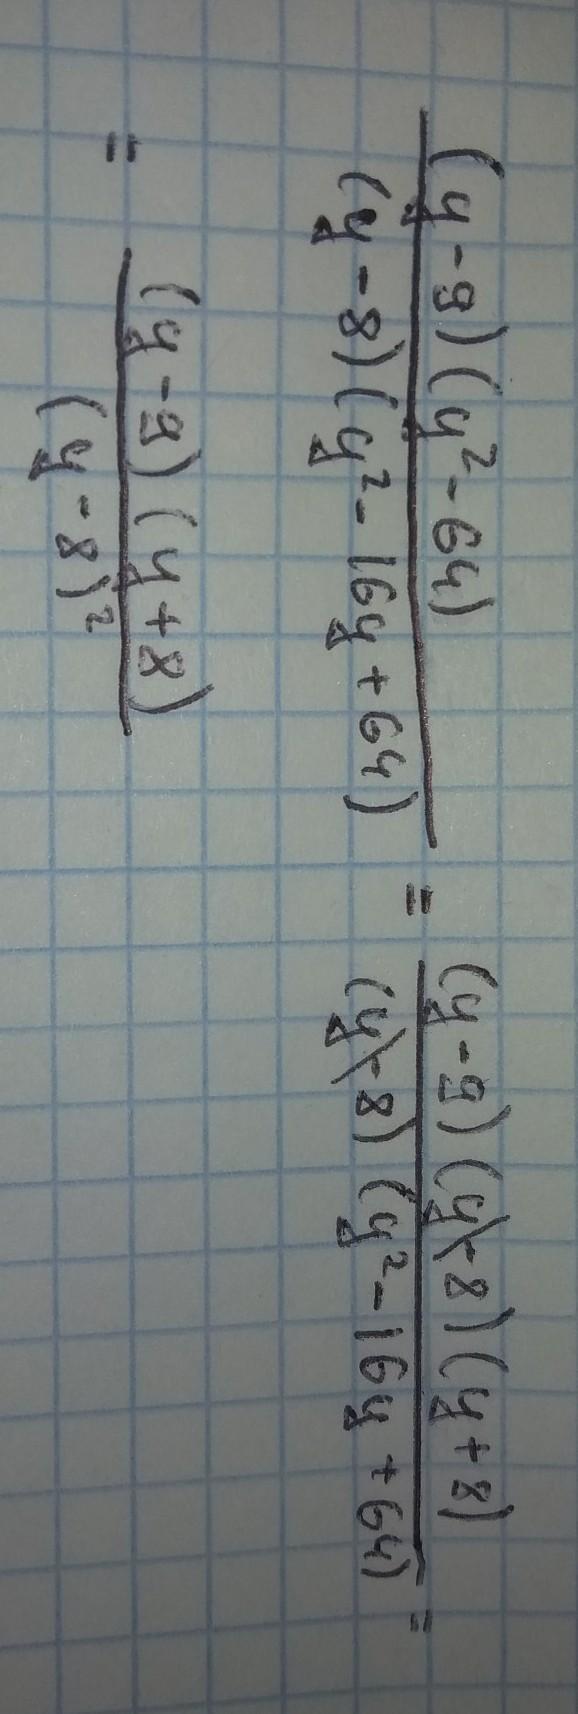 (y-9)(y²-64)
(y-8)(y²-16y+64)
=
(y-9)(y-8)(y+8)
(y-8)(y²-16y+64)
=
=
(y-9)(y+8)
(y-8)²